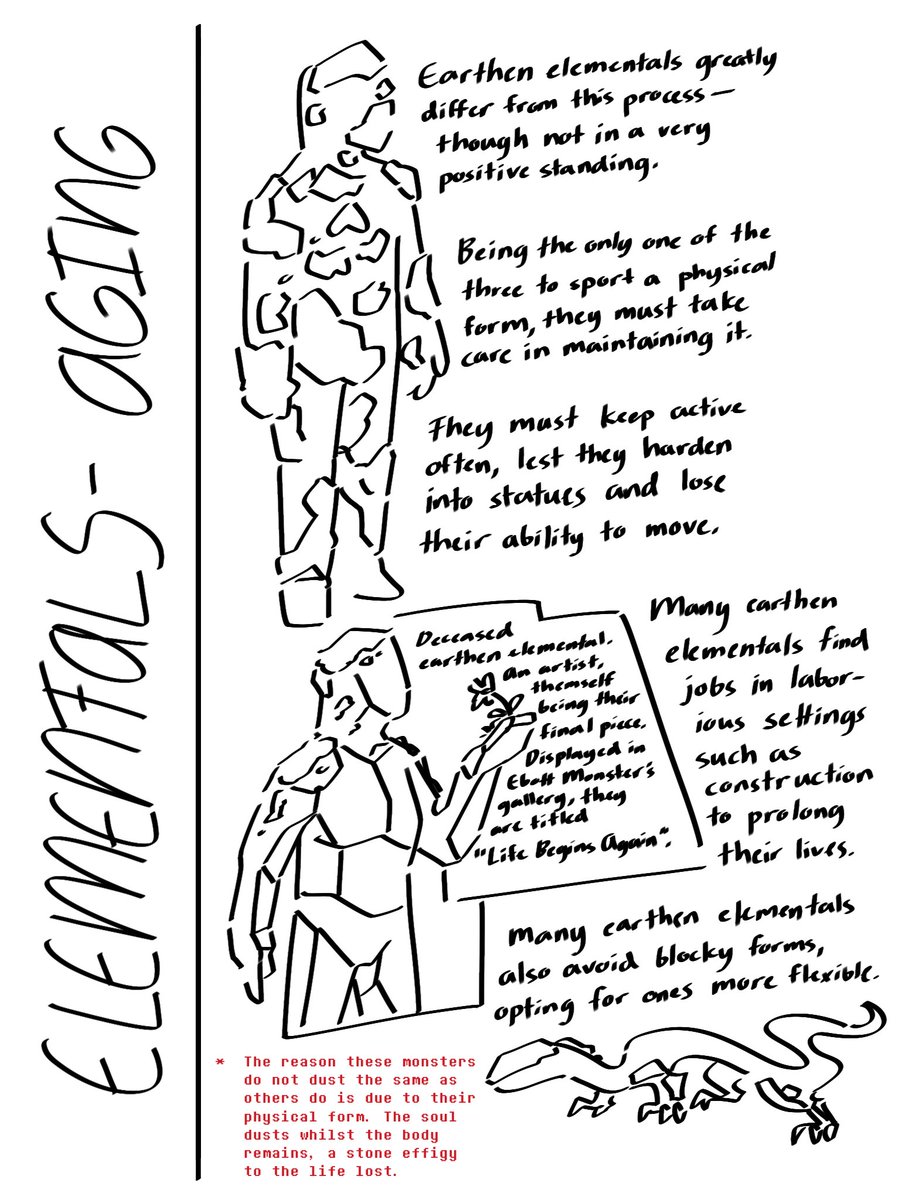 ELEMENTALS- AGING
Earthen elementals greatly
differ from this process—
though not in a very
positive standing.
Being the only one of the
three to sport a physical
form, they must take
care in maintaining it.
They must keep active
often, lest they harden
into statues and lose
their ability to move.
Deceased
earthen elemental.
An artist,
themself
being their
final piece.
Displayed in
Ebott Monster's
gallery, they
are titled
"Life Begins Again".
Many earthen
elementals find
jobs in labor-
ious settings
such as
construction
to prolong
their lives.
Many earthen elementals
also avoid blocky forms,
opting for ones more flexible.
* The reason these monsters
do not dust the same as
others do is due to their
physical form. The soul
dusts whilst the body
remains, a stone effigy
to the life lost.